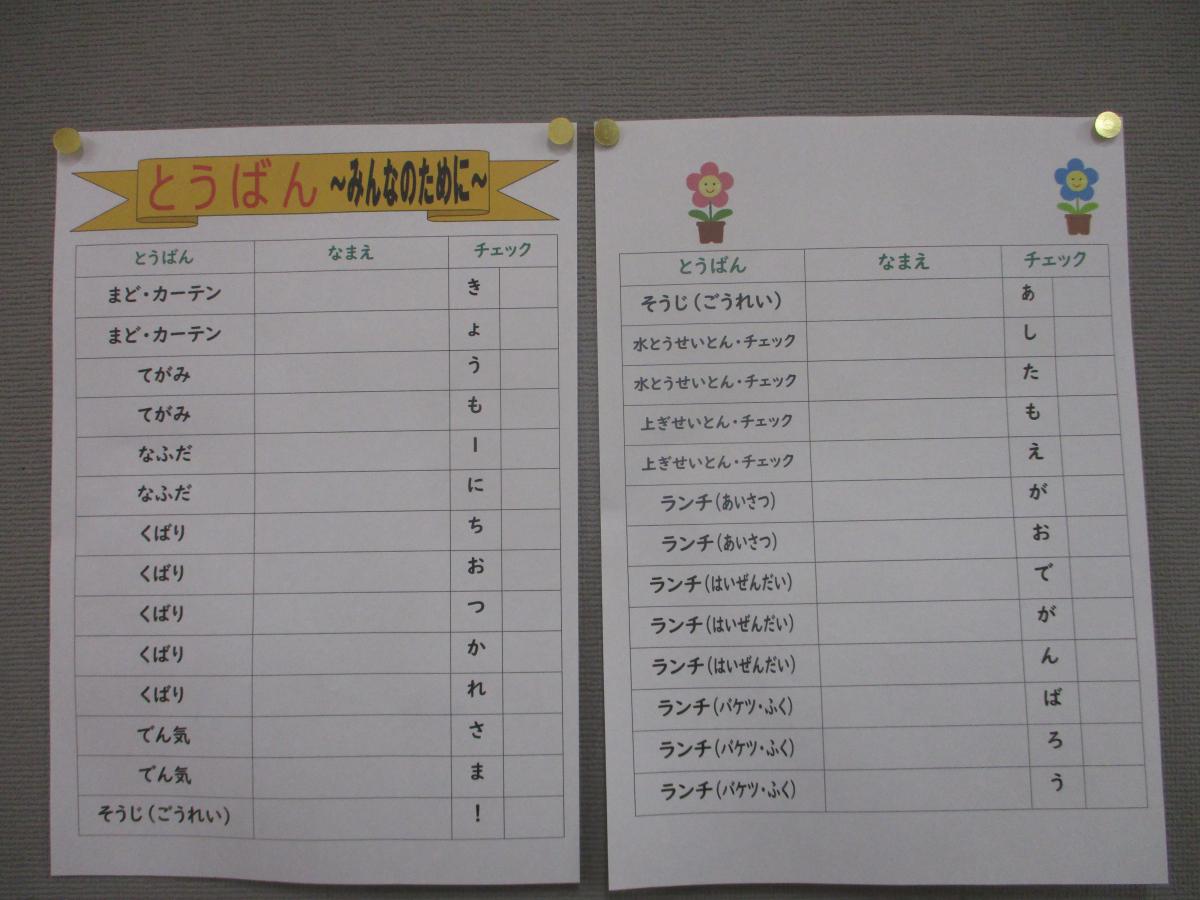 とうばん ~みんなのために~
とうばん なまえ チェック
まど・カーテン き
まど・カーテン ょ
てがみ う
てがみ も
なふだ ー
なふだ に
くばり ち
くばり お
くばり つ
くばり か
くばり れ
でん気 さ
でん気 ま
そうじ(ごうれい) !
とうばん なまえ チェック
そうじ(ごうれい) あ
水とうせいとん・チェック し
水とうせいとん・チェック た
上ぎせいとん・チェック も
上ぎせいとん・チェック え
ランチ(あいさつ) が
ランチ(あいさつ) お
ランチ(はいぜんだい) で
ランチ(はいぜんだい) が
ランチ(はいぜんだい) ん
ランチ(バケツ・ふく) ば
ランチ(バケツ・ふく) ろ
ランチ(バケツ・ふく) う